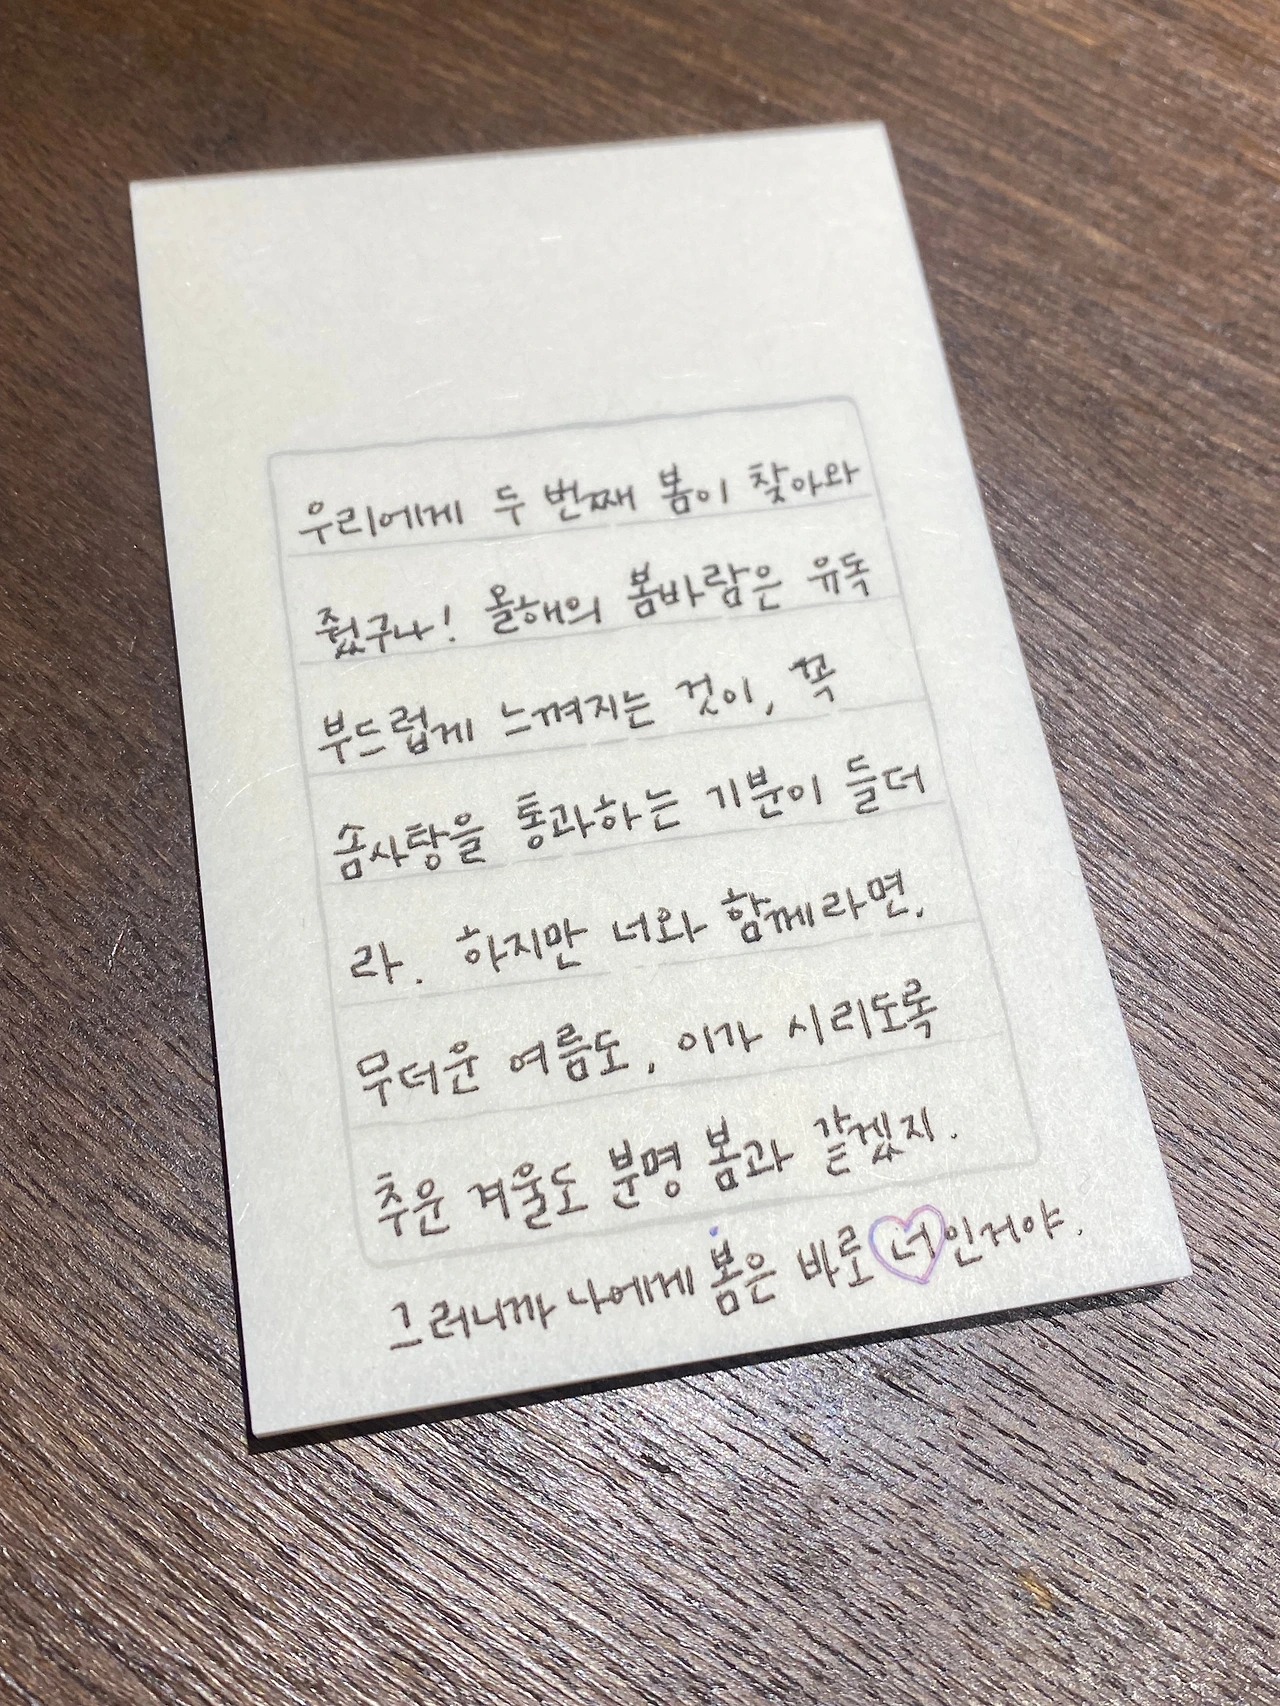 우리에게 두 번째 봄이 찾아와
줬구나! 올해의 봄바람은 유독
부드럽게 느껴지는 것이, 꼭
솜사탕을 통과하는 기분이 들더
라. 하지만 너와 함께라면,
무더운 여름도, 이가 시리도록
추운 겨울도 분명 봄과 같겠지.
그러니까 나에게 봄은 바로 너인거야.